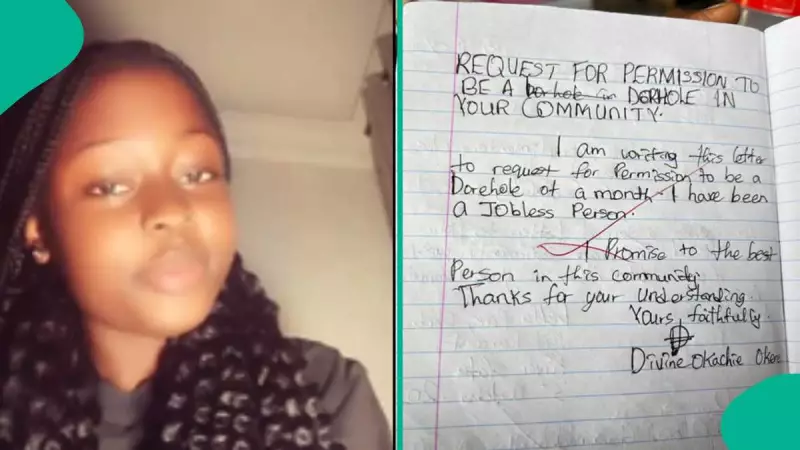 REQUEST FOR PERMISSION TO
BE A DORHOLE IN
YOUR COMMUNITY.
I am writing this letter
to request for Permission to be a
Dorehole of a month I have been
a Jobless Person.
I Promise to the best
Person in this community.
Thanks for your understanding.
Yours, faithfully.
Divine Okachie